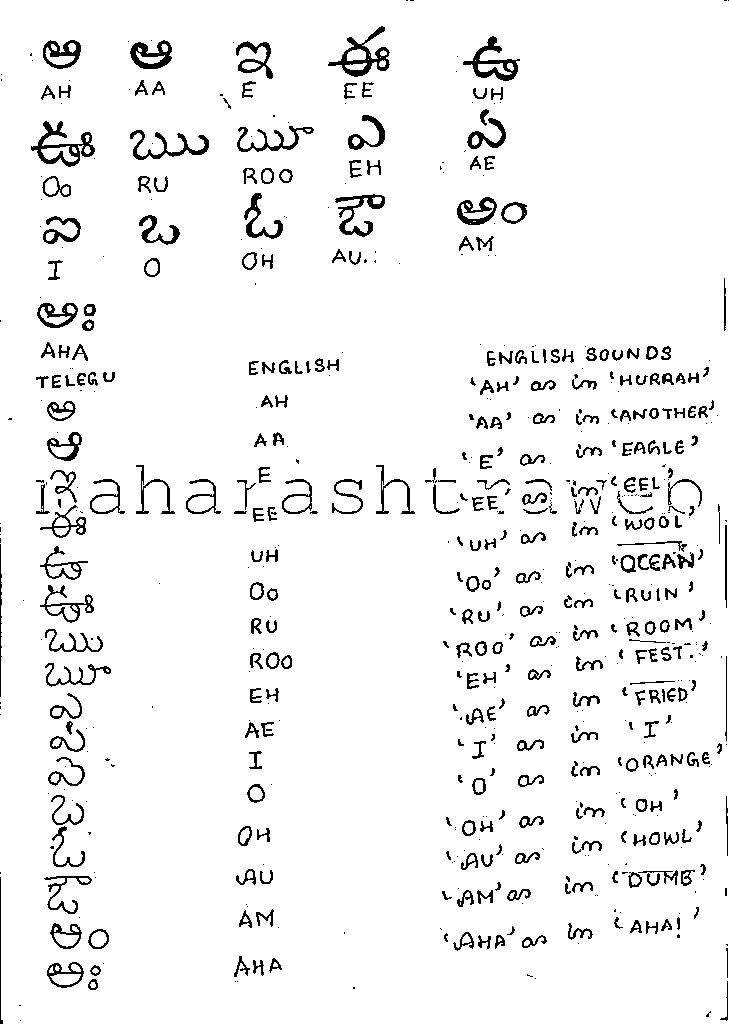 అ ఆ ఇ ఈ ఉ
AH AA E EE UH
ఊ ఋ ౠ ఎ ఏ
Oo RU ROO EH AE
ఐ ఒ ఓ ఔ అం
I O OH AU. AM
అః
AHA
TELEGU ENGLISH ENGLISH SOUNDS
అ AH 'AH' as in 'HURRAH'
ఆ AA 'AA' as in 'ANOTHER'
ఇ E 'E' as in 'EAGLE'
maharashtraweb
ఈ EE 'EE' as in 'EEL'
ఉ UH 'UH' as in 'WOOL'
ఊ Oo 'Oo' as in 'OCEAN'
ఋ RU 'RU' as in 'RUIN'
ౠ ROO 'ROO' as in 'ROOM'
ఎ EH 'EH' as in 'FEST.'
ఏ AE 'AE' as in 'FRIED'
ఐ I 'I' as in 'I'
ఒ O 'O' as in 'ORANGE'
ఓ OH 'OH' as in 'OH'
ఔ AU 'AU' as in 'HOWL'
అం AM 'AM' as in 'DUMB'
అః AHA 'AHA' as in 'AHA!'